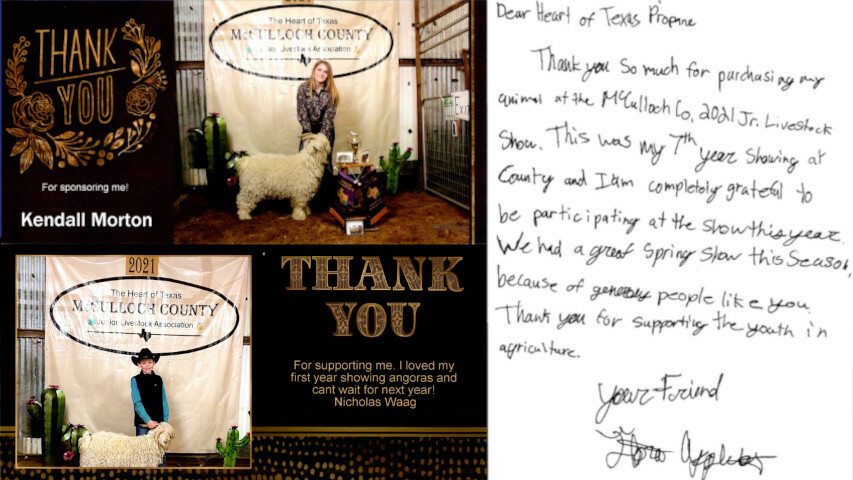 THANK
YOU
For sponsoring me!
Kendall Morton
2021
The Heart of Texas
McCULLOCH COUNTY
Junior Livestock Association
Exit
2021
The Heart of Texas
McCULLOCH COUNTY
Junior Livestock Association
THANK
YOU
For supporting me. I loved my
first year showing angoras and
cant wait for next year!
Nicholas Waag
Dear Heart of Texas Propane
Thank you so much for purchasing my
animal at the McCulloch Co. 2021 Jr. Livestock
Show. This was my 7th year showing at
County and I am completely grateful to
be participating at the show this year.
We had a great Spring Show this Season,
because of people like you.
Thank you for supporting the youth in
agriculture.
Your Friend